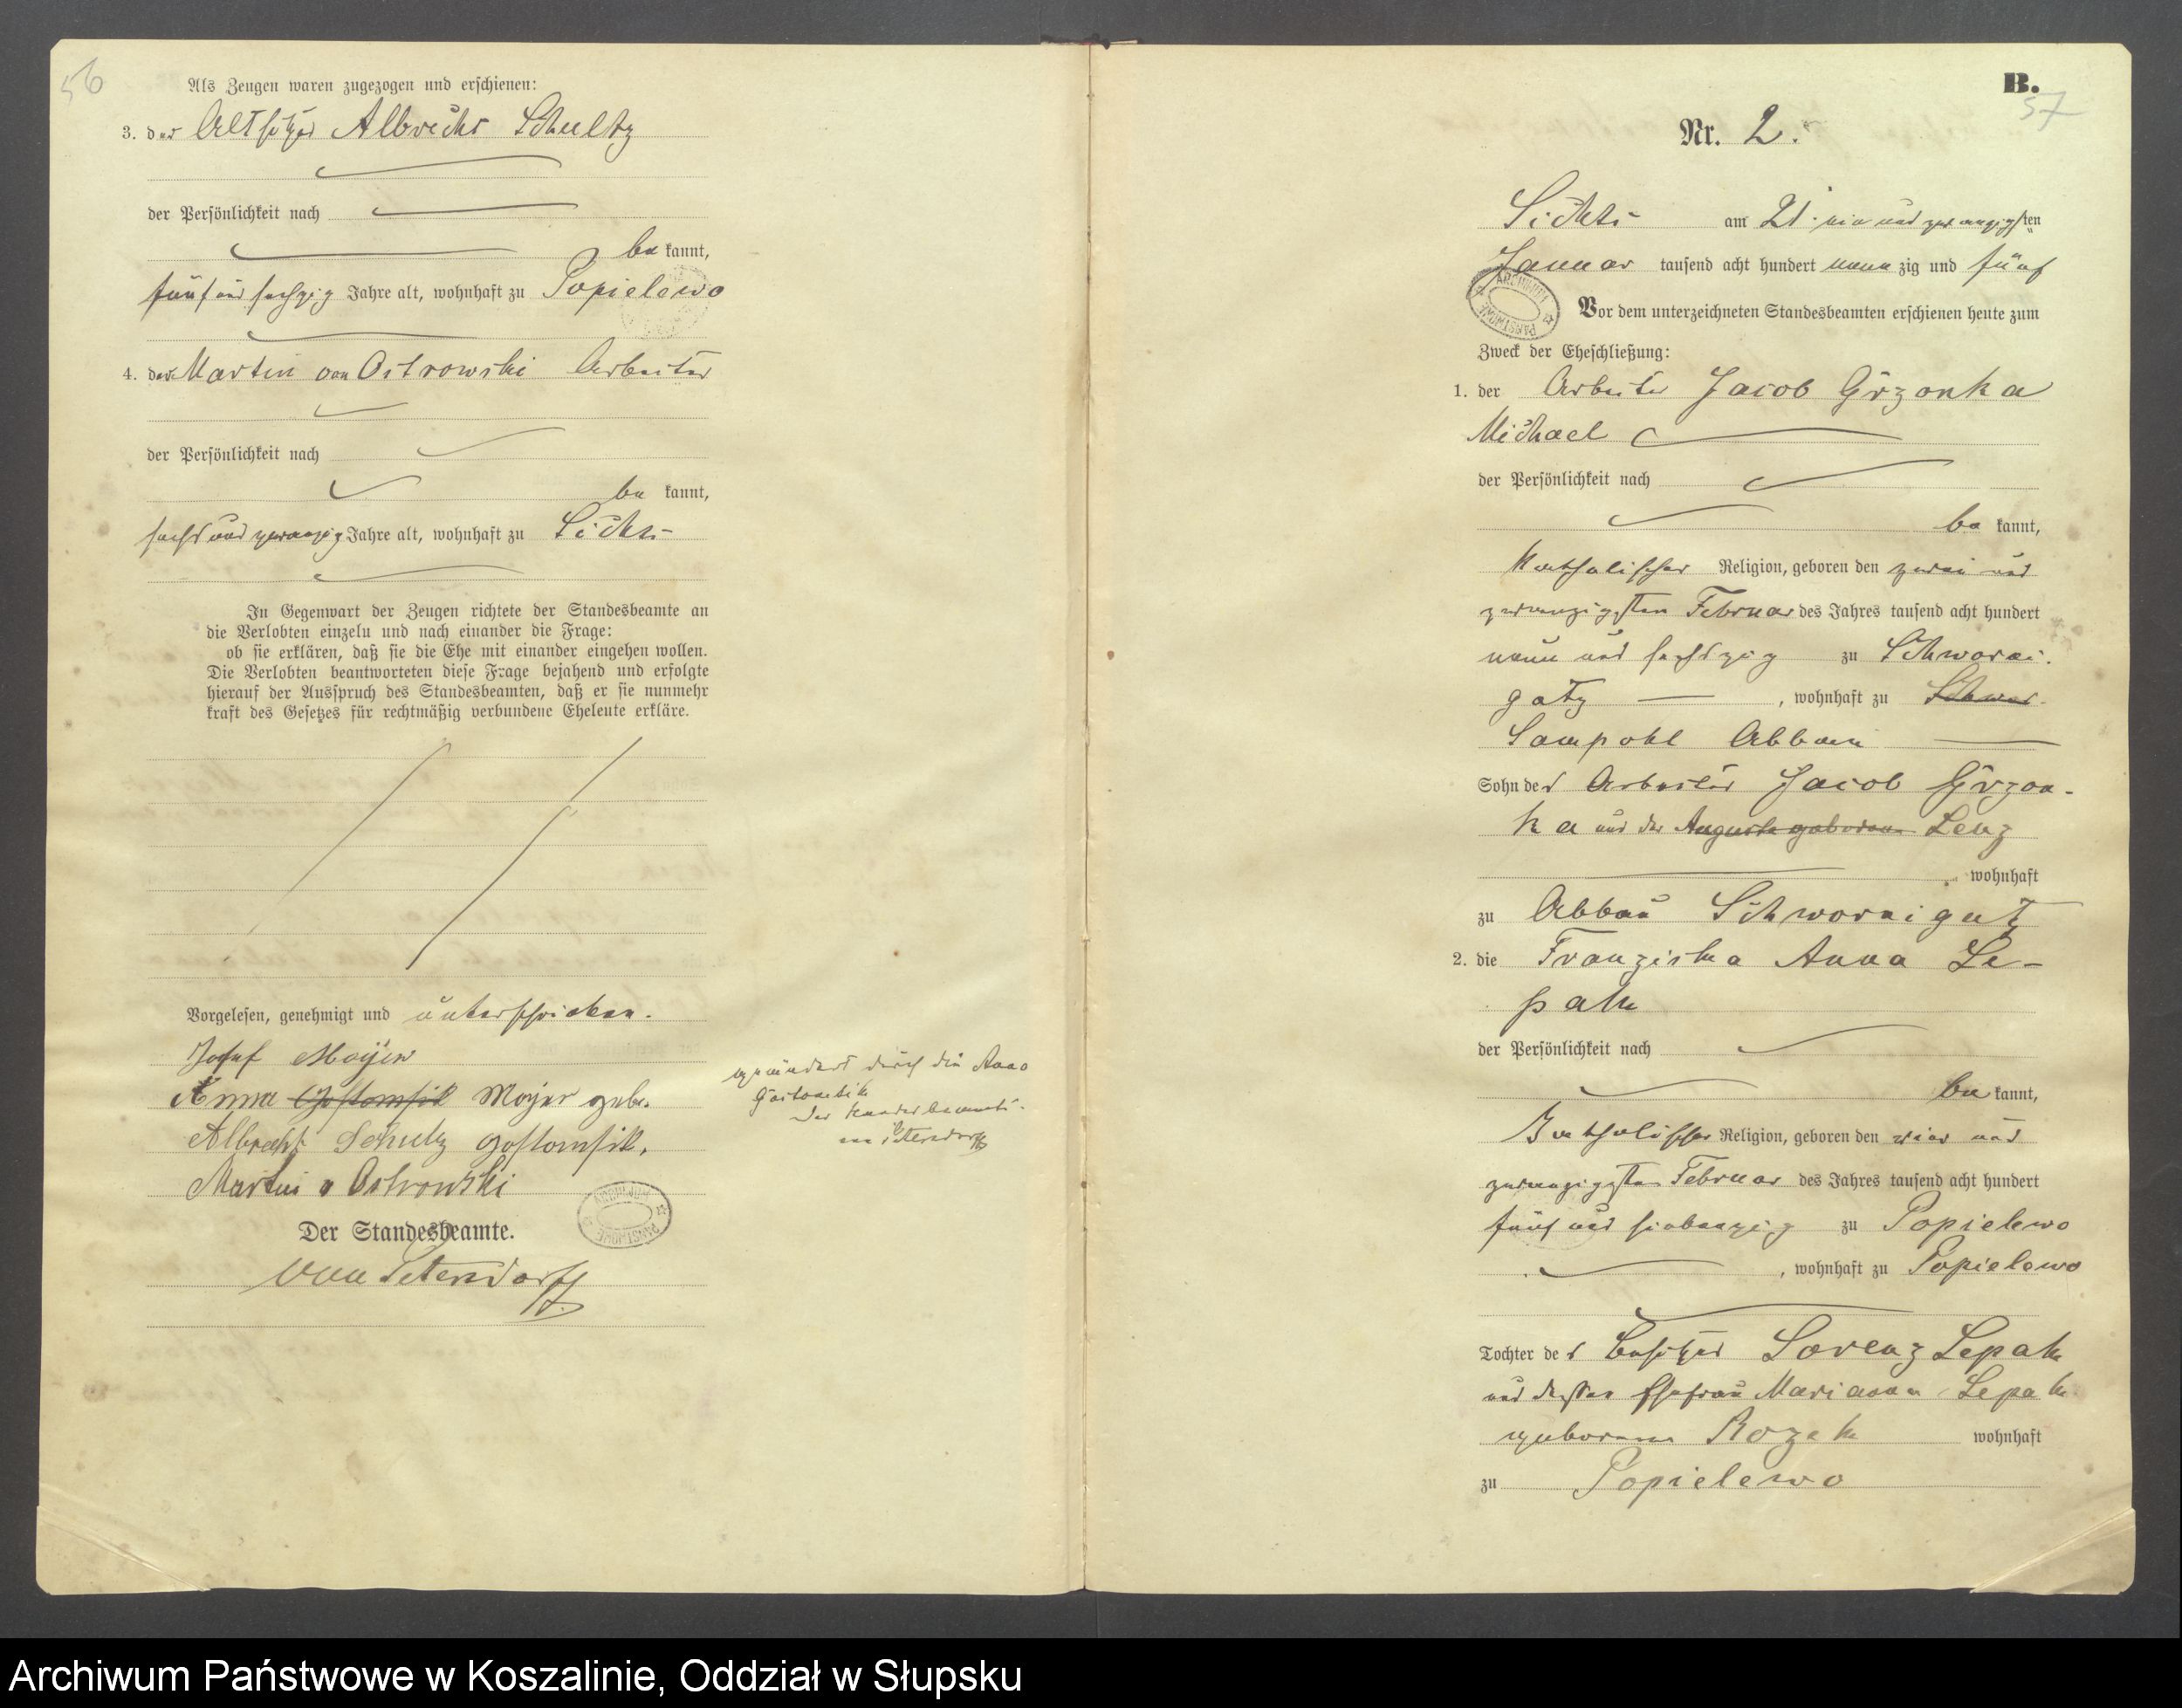 56
Als Zeugen waren zugezogen und erschienen:
3. der Altsitzer Albrecht Schultz
der Persönlichkeit nach
be kannt,
fünf und sechzig Jahre alt, wohnhaft zu Popielewo
4. der Martin von Ostrowski Arbeiter
der Persönlichkeit nach
be kannt,
sechs und zwanzig Jahre alt, wohnhaft zu
In Gegenwart der Zeugen richtete der Standesbeamte an
die Verlobten einzeln und nach einander die Frage:
ob sie erklären, daß sie die Ehe mit einander eingehen wollen.
Die Verlobten beantworteten diese Frage bejahend und erfolgte
hierauf der Ausspruch des Standesbeamten, daß er sie nunmehr
kraft des Gesetzes für rechtmäßig verbundene Eheleute erkläre.
Vorgelesen, genehmigt und unterschrieben.
Josef Mayer
Anna Gostomsik Mayer geb.
Albrecht Schultz gostomsik.
Martin v Ostrowski
geändert durch die Anna
Gostomsik
Der Standesbeamte.
von Petersdorff
Der Standesbeamte.
von Petersdorff
B.
57
Nr. 2.
am 21. ein und zwanzigsten
Januar tausend acht hundert neun zig und fünf
Vor dem unterzeichneten Standesbeamten erschienen heute zum
Zweck der Eheschließung:
1. der Arbeiter Jacob Grzonka
Michael
der Persönlichkeit nach
be kannt,
katholischer Religion, geboren den zwei und
zwanzigsten Februar des Jahres tausend acht hundert
neun und sechszig zu Schworni-
gatz, wohnhaft zu Schwor-
Sampohl Abbau
Sohn des Arbeiters Jacob Grzon-
ka und der Auguste geborene Lenz
wohnhaft
zu Abbau Schwornigatz
2. die Franziska Anna Le-
pak
der Persönlichkeit nach
be kannt,
katholischer Religion, geboren den vier und
zwanzigsten Februar des Jahres tausend acht hundert
fünf und siebenzig zu Popielewo
, wohnhaft zu Popielewo
Tochter des Besitzers Lorenz Lepak
und dessen Ehefrau Marianna Lepak
geborene Rozek wohnhaft
zu Popielewo
ARCHIWUM PAŃSTWOWE
Archiwum Państwowe w Koszalinie, Oddział w Słupsku